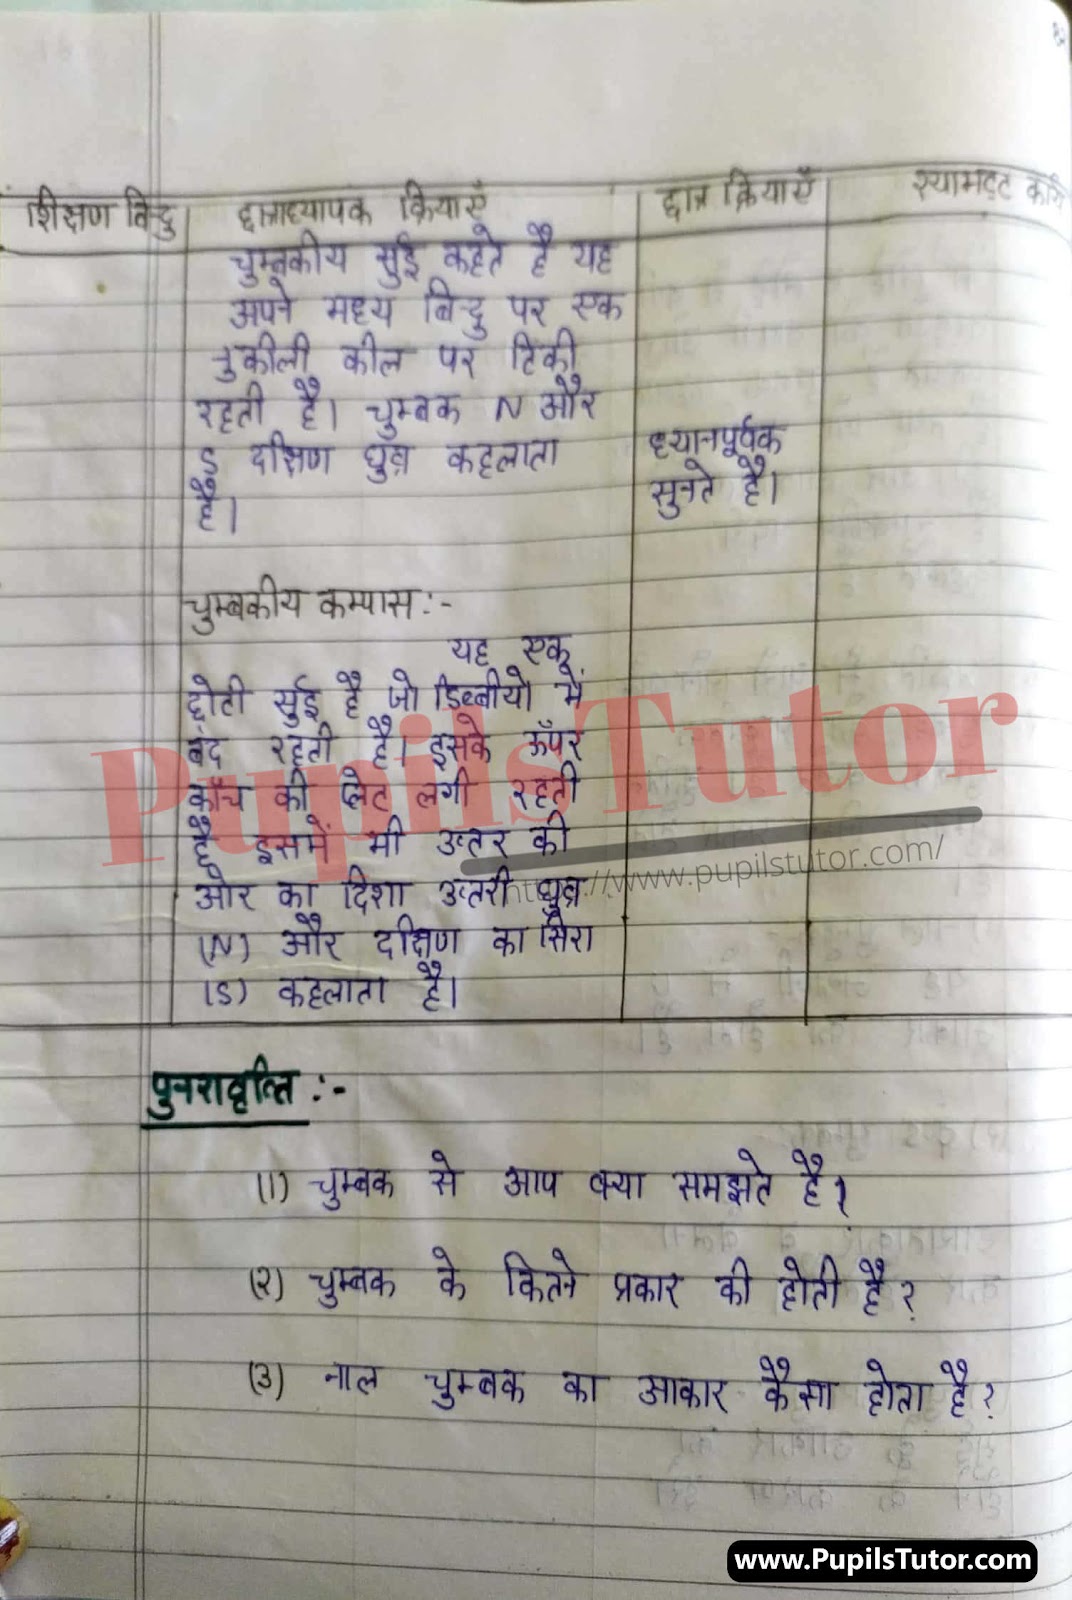 शिक्षण बिन्दु
छात्राध्यापक क्रियाएँ
छात्र क्रियाएँ
श्यामपट्ट कार्य
चुम्बकीय सुई कहते है यह
अपने मध्य बिन्दु पर एक
नुकीली कील पर टिकी
रहती है। चुम्बक N और
S दक्षिण ध्रुव कहलाता
है।
ध्यानपूर्वक
सुनते है।
चुम्बकीय कम्पास:-
यह एक
छोटी सुई है जो डिब्बीयो में
बंद रहती है। इसके ऊँपर
काँच की प्लेट लगी रहती
है इसमें भी उत्तर की
ओर का दिशा उत्तरी ध्रुव
(N) और दक्षिण का सिरा
(S) कहलाता है।
पुनरावृत्ति :-
(1) चुम्बक से आप क्या समझते है?
(२) चुम्बक के कितने प्रकार की होती है?
(३) नाल चुम्बक का आकार कैसा होता है?
PupilsTutor
https://www.pupilstutor.com/
www.PupilsTutor.com